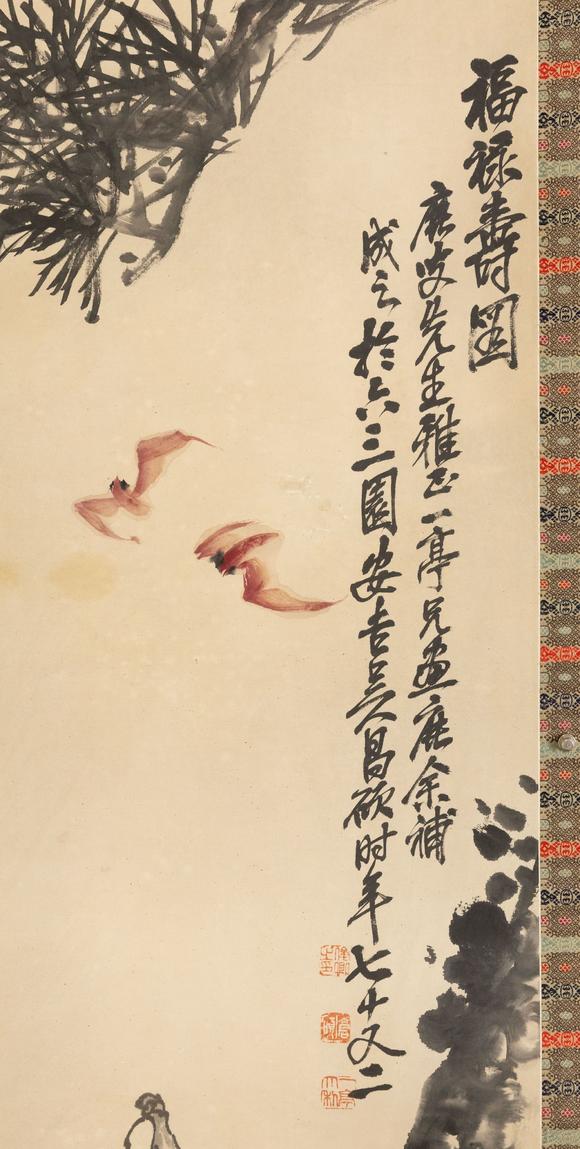 福祿壽圖
鹿叟先生雅正一亭兄畫鹿余補
成之於六三園安吉吳昌碩时年七十又二
一亭